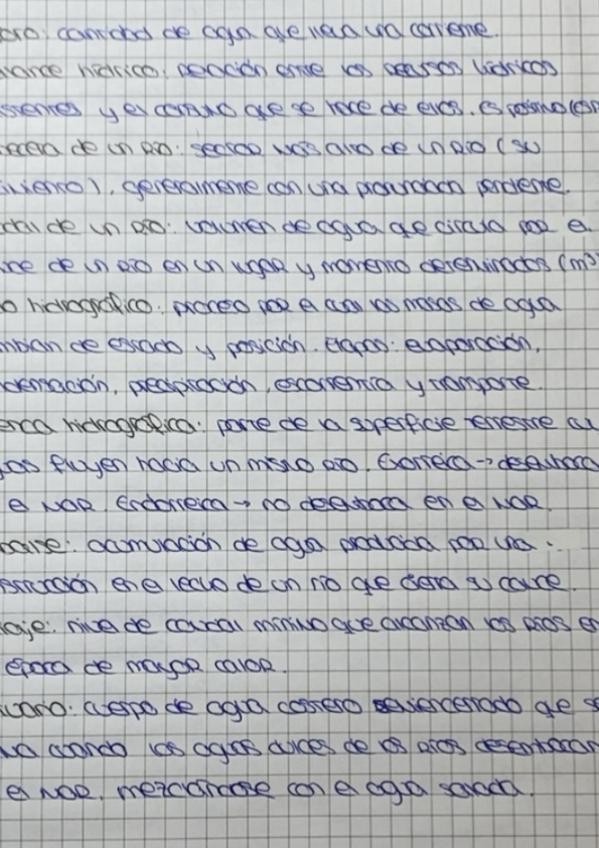 oro: cantidad de agua que lleva una corriente.
lance hídrico: relación entre los recursos hídricos
istentes y el consumo que se hace de ellos. Es positivo
becera de un río: sección más alto de un río (su
imiento), generalmente con una pronunciada pendiente.
udal de un río: volumen de agua que circula por el
uce de un río en un lugar y momento determinados (m³
o hidrográfico: proceo por el cual las masas de agua
mbian de estado y posición. Etapas: evaporación,
densación, precipitación, escorrentía y transporte.
enca hidrográfica: parte de la superficie terrestre cu
uas fluyen hacia un mismo río. Exorreica → desemboca
el mar. Endorreica → no desemboca en el mar.
balse: acumulación de agua producida por una
strucción en el lecho de un río que cierra su cauce.
iaje: nivel de caudal mínimo que alcanzan los ríos en
época de mayor calor.
uario: cuerpo de agua costero semicerrado que s
ma cuando las aguas dulces de los ríos desembocan
el mar, mezclándose con el agua salada.